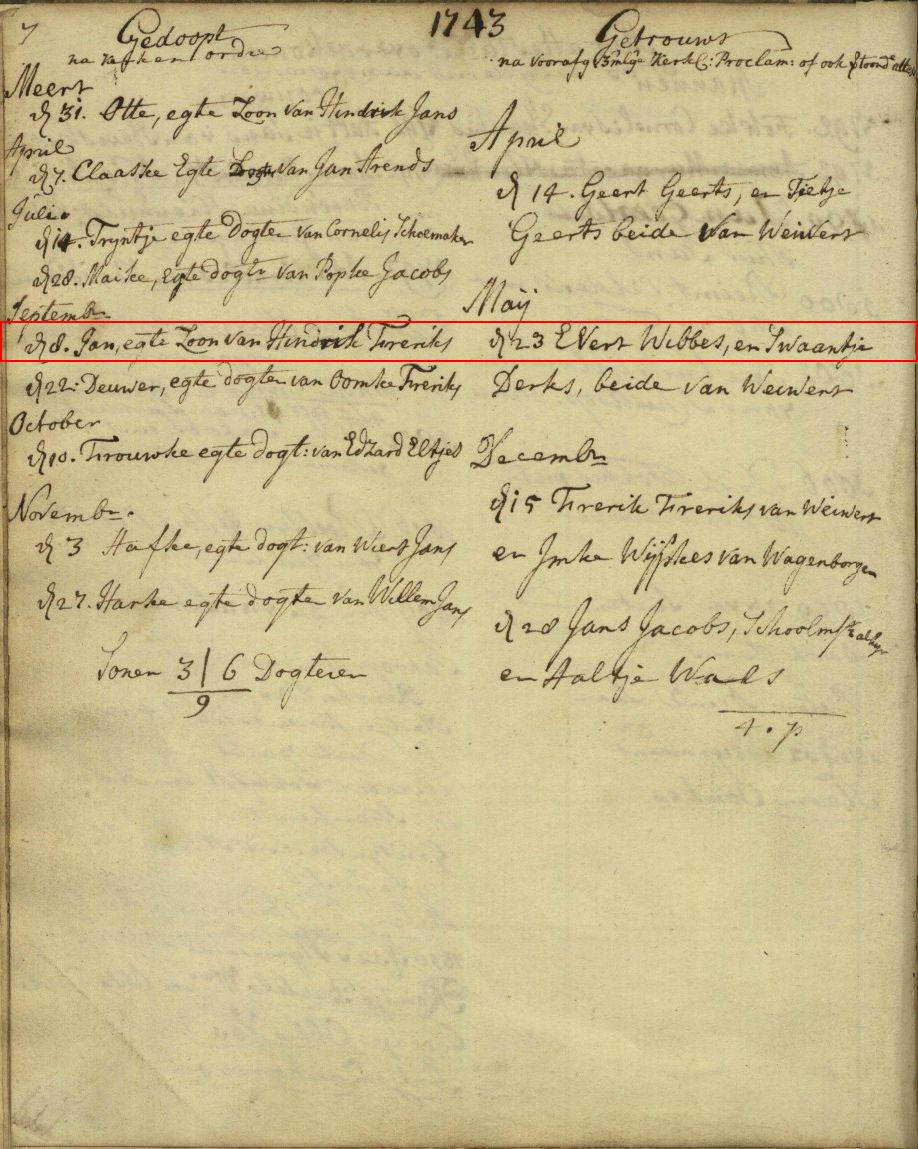 7
1743
Gedoopt
na kerken ordre
Meert
d 31. Otte, egte Zoon van Hindrik Jans
April
d 7. Claaske Egte Dogter van Jan Arends
Juli.
d 14. Tryntje egte Dogter van Cornelis Schoemaker
d 28. Maike, egte dogtr van Popke Jacobs
Septembr
d 8. Jan, egte Zoon van Hindrik Freriks
d 22. Deuwer, egte dogter van Oomke Freriks
October
d 10. Frouwke egte dogt: van Edzard Eltjes
Novembr.
d 3 Aafke, egte dogt: van Wiert Jans
d 27. Harke egte dogter van Willem Jans
Sonen 3 | 6 Dogteren
9
Getrouwt
na voorafg 3 Kerk: Proclam: of ook
April
d 14. Geert Geerts, en Tietje
Geerts beide van Weiwert
Maij
d 23 Evert Wibbes, en Swaantje
Derks, beide van Weiwert
Decembr
d 15 Frerik Freriks van Weiwert
en Imke Wijpkes van Wagenborgen
d 28 Jans Jacobs, Schoolmstr alhijr
en Aaltje Waals
4. p